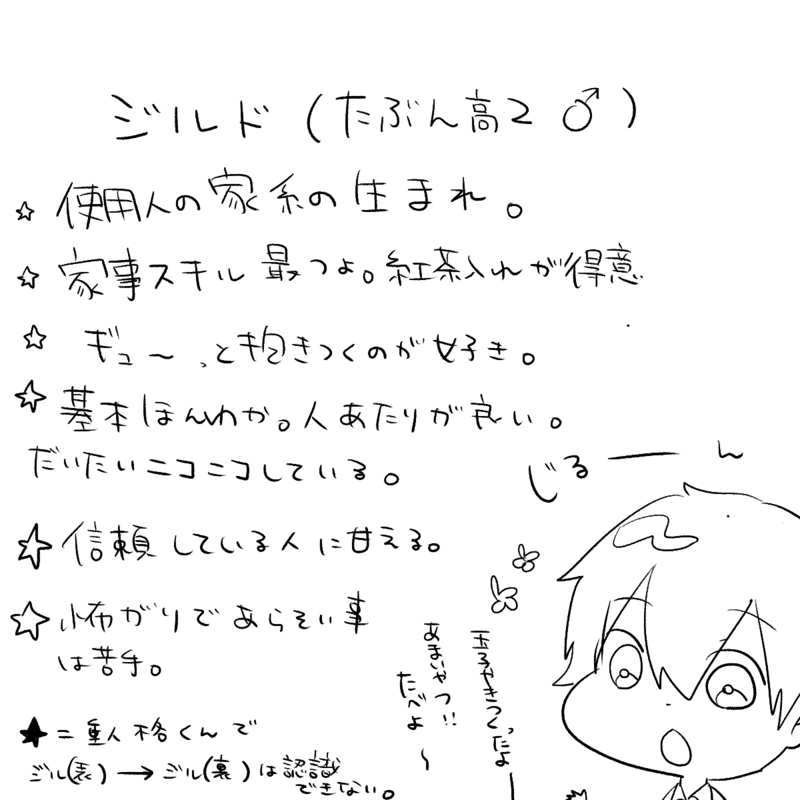 ジルド(たぶん高2 ♂)
☆ 使用人の家系の生まれ。
☆ 家事スキル最つよ。紅茶入れが得意
☆ ギュ〜っと抱きつくのが好き。
☆ 基本ほんわか。人あたりが良い。
だいたいニコニコしている。
☆ 信頼している人に甘える。
☆ 怖がりであらそい事
は苦手。
★ 二重人格くんで
ジル(表)→ジル(裏)は認識
できない。
じるーん
玉子やきつくったよー
あまいやつ!!
たべよ〜